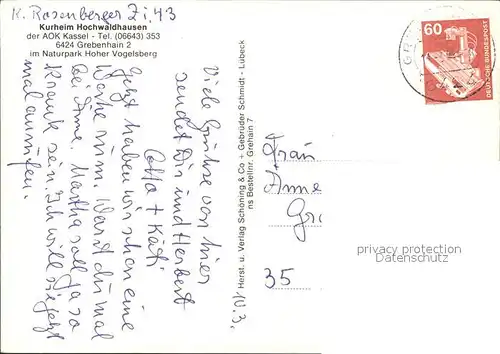 K. Rosenberger Zi. 43
Kurheim Hochwaldhausen
der AOK Kassel - Tel. (06643) 353
6424 Grebenhain 2
im Naturpark Hoher Vogelsberg
Viele Grüße von hier
sendet Dir und Herbert
Otto + Käti
Jetzt haben wir schon eine
Woche rum. Warst du mal
bei Anne. Martha soll ja so
krank sein. Ich will sie jetzt
mal anrufen.
Herst. u. Verlag Schöning & Co + Gebrüder Schmidt - Lübeck
ns Bestellnr. Grehain 7
10.3,
60
DEUTSCHE BUNDESPOST
Frau
Anne
Gr
35
privacy protection
Datenschutz